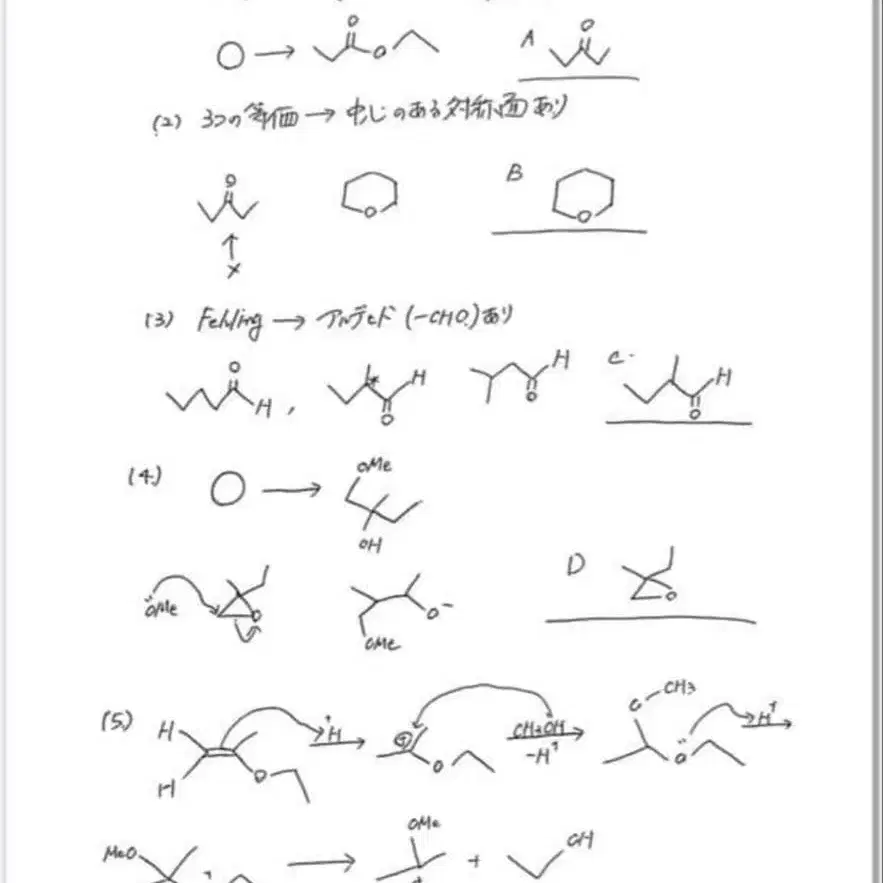 O O A
O
(2) 3つの等価 → 中心のある対称面あり
O B
O O
×
(3) Fehling → アルデヒド (-CHO)あり
O H H C. H
H , * O O O
(4) OMe
→
OH
D
:OMe O O⁻ O
OMe
(5) H ⁺H ⊕ CH₃OH O-CH₃ H⁺
H O O -H⁺ O
MeO → OMe + OH